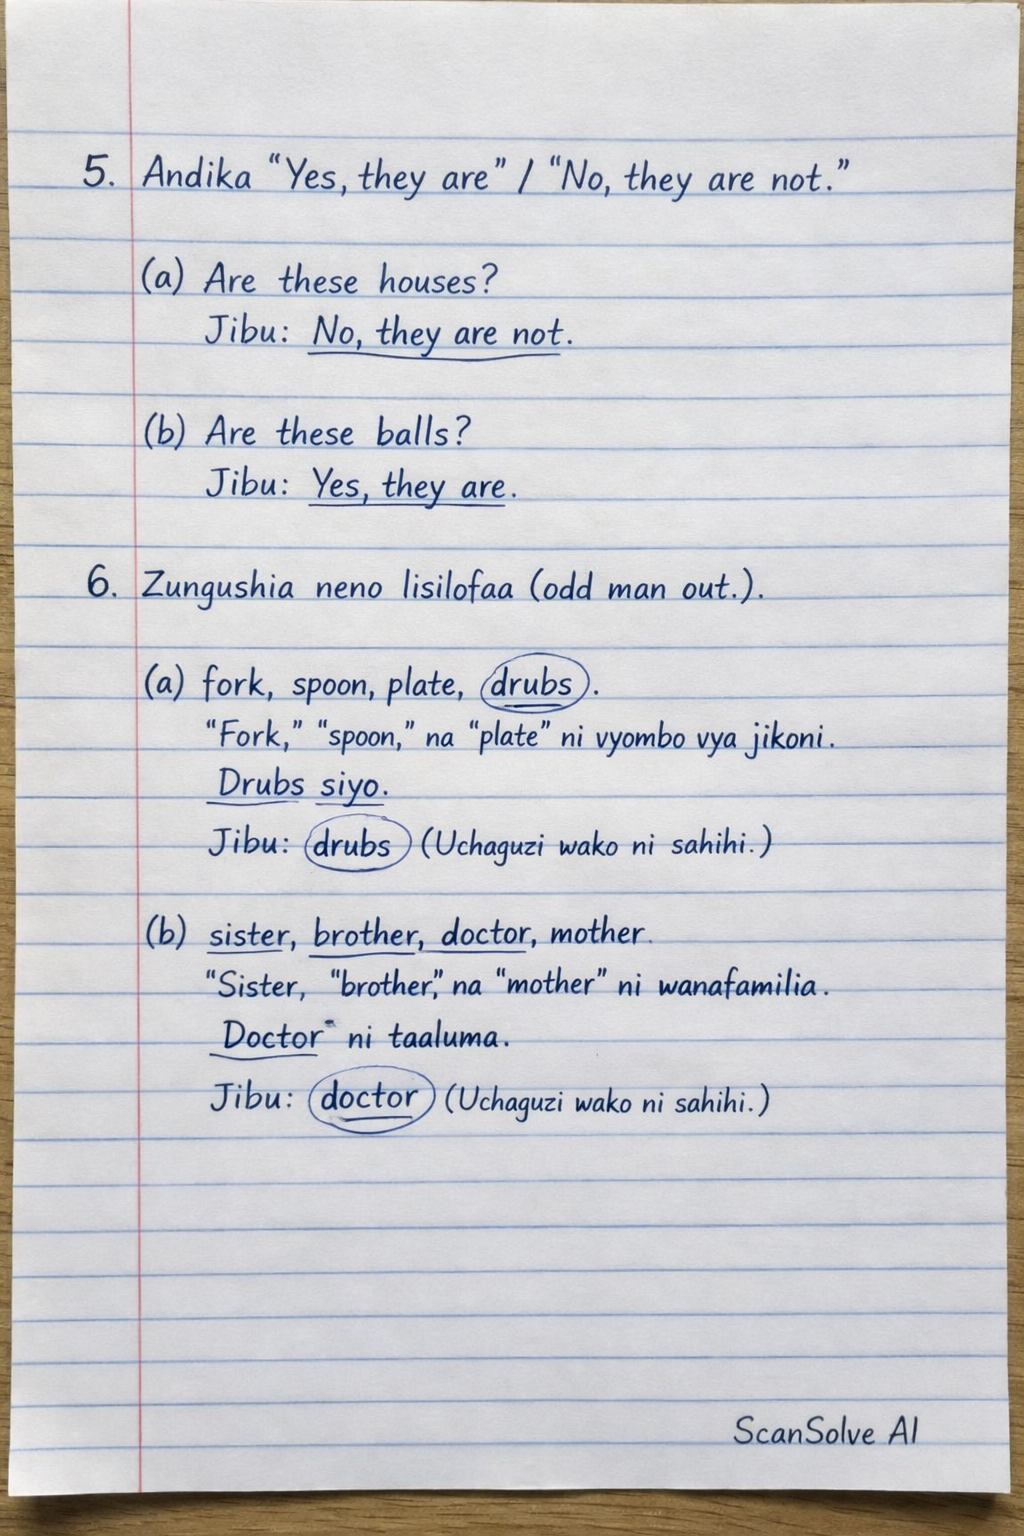 5. Andika “Yes, they are” / “No, they are not.”
(a) Are these houses?
Jibu: No, they are not.
(b) Are these balls?
Jibu: Yes, they are.
6. Zungushia neno lisilofaa (odd man out.).
(a) fork, spoon, plate, drubs.
“Fork,” “spoon,” na “plate” ni vyombo vya jikoni.
Drubs siyo.
Jibu: drubs (Uchaguzi wako ni sahihi.)
(b) sister, brother, doctor, mother.
“Sister, “brother,” na “mother” ni wanafamilia.
Doctor” ni taaluma.
Jibu: doctor (Uchaguzi wako ni sahihi.)
ScanSolve AI